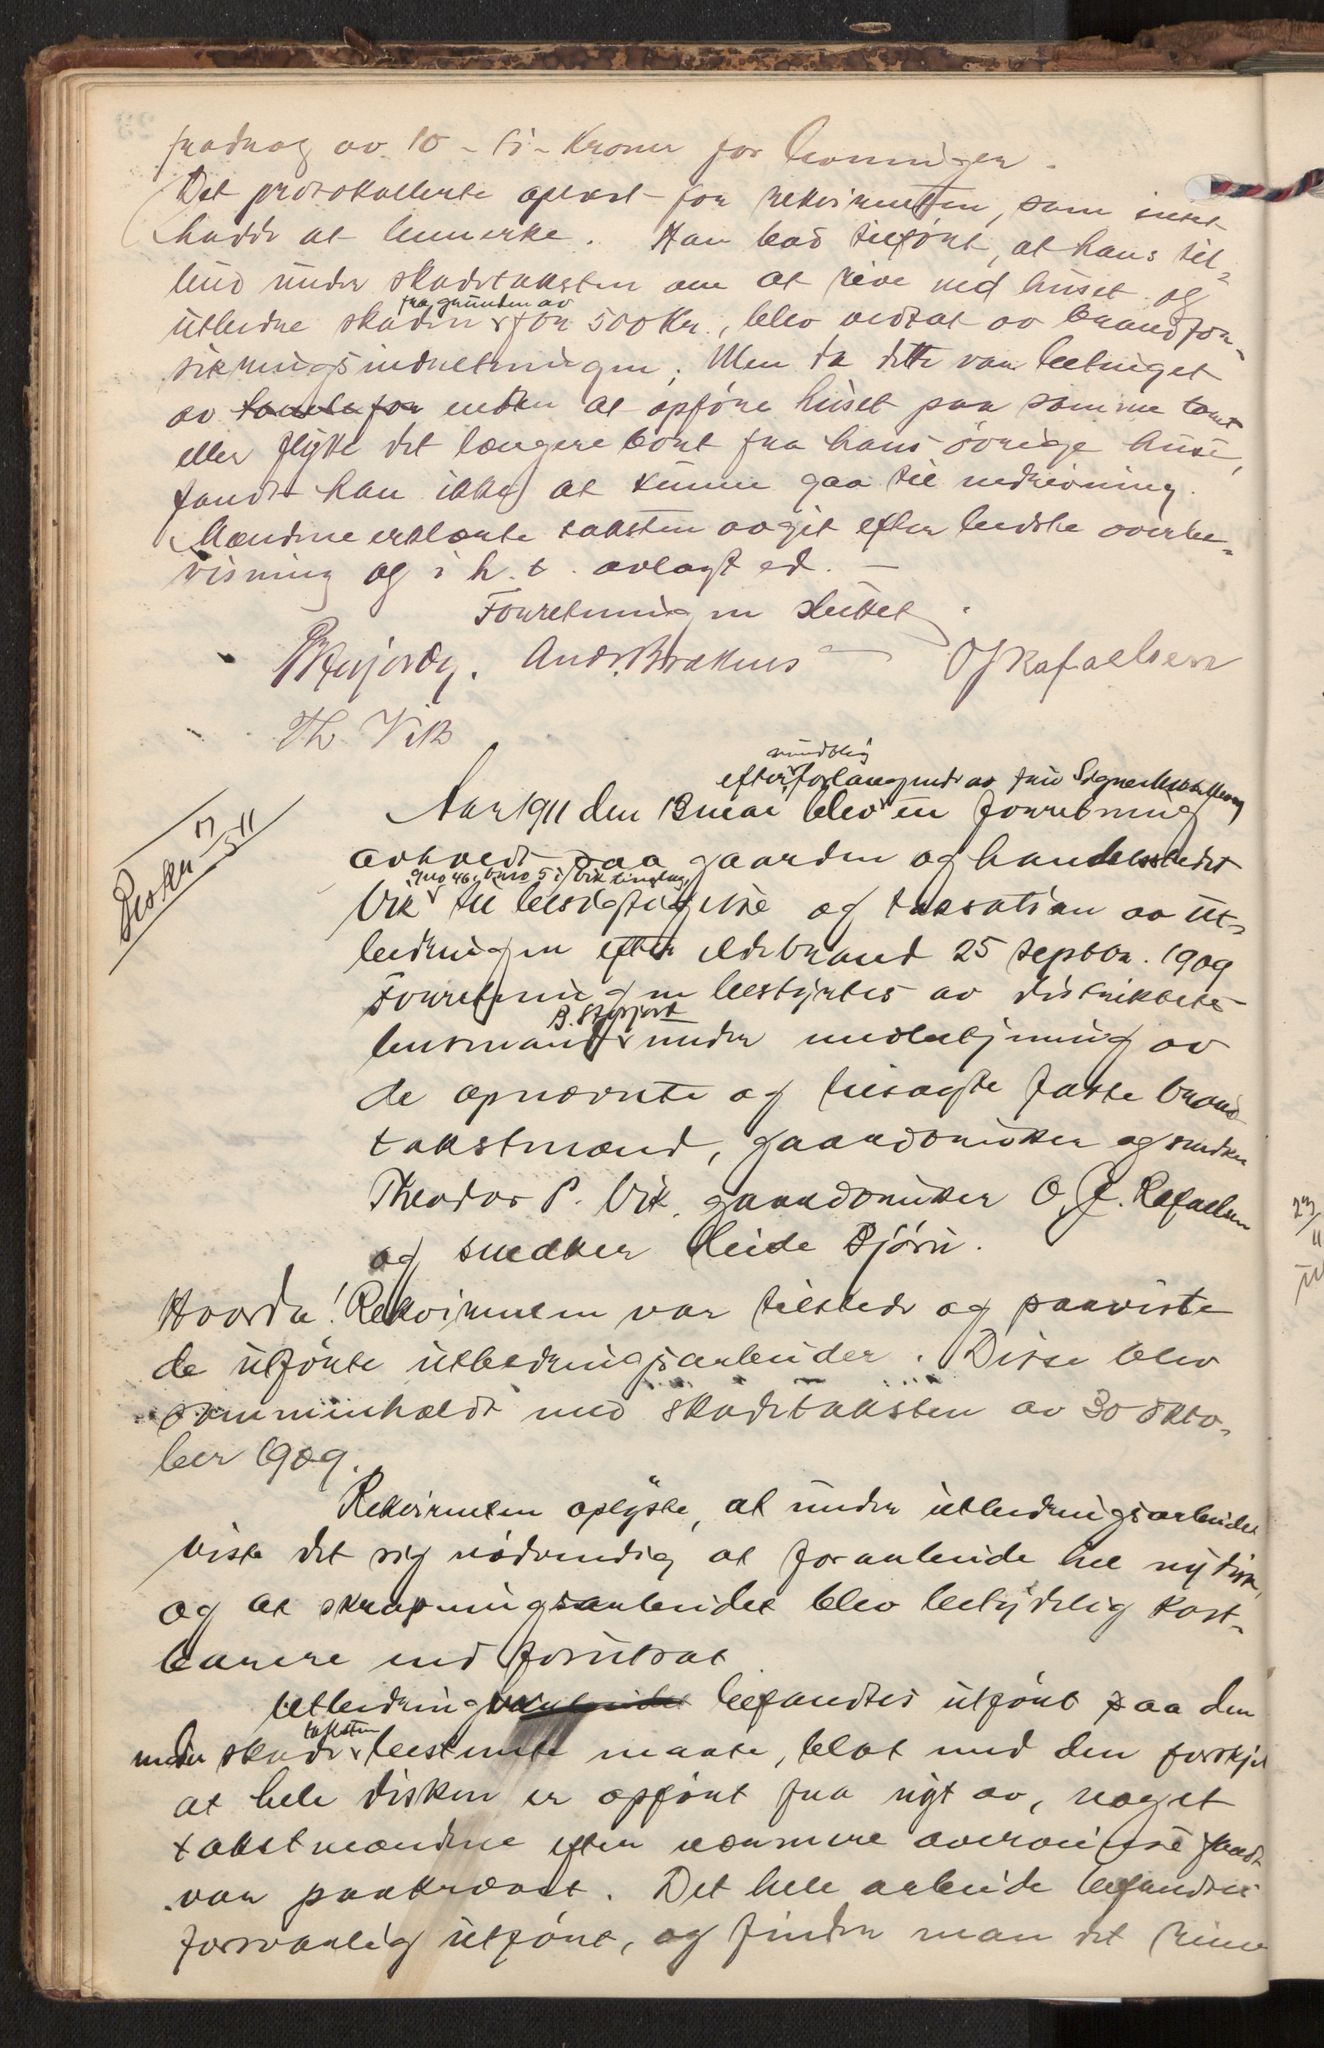 fradrag av 10 - ti - Kroner for
Det protokollerte oplæst for rekvirenten, som intet
hadde at bemerke. Han bad tilført, at hans til-
bud under skadetaksten om at rive ned huset og
utbedre skaden fra grunden av for 500 Kr., blev vedtat av brandfor-
sikringsindretningen. Men da dette var betinget
av enten at opføre huset paa samme tomt
eller flytte det længere bort fra hans øvrige huse,
fandt han ikke at kunne gaa til nedrivning.
Mændene erklærte taksten avgit efter bedste overbe-
visning og i h. t. avlagt ed. —
Forretningen sluttet.
Andr. Brækhus O J Rafaelsen
Th. Vik
mundtlig
efter forlangende av fru Signe
Aar 1911 den 13 mai blev en forretning
avholdt paa gaarden og handelsstedet
gno 46, bno 5 i Vik tinglag,
Vik til besigtigelse og taksation av ut-
bedringen efter ildebrand 25 septbr. 1909
Forretningen bestyrtes av distriktets
lensmand under medbetjening av
de opnævnte og tilsagte faste brand-
takstmænd, gaardbruker og snedker
Theodor P. Vik, gaardbruker O. J. Rafaelsen
og snedker Leide Bjørn.
Hvorda! Rekvirenten var tilstede og paaviste
de utførte utbedringsarbeider. Disse blev
sammenholdt med skadetaksten av 30 okto-
ber 1909.
Rekvirenten oplyste, at under utbedringsarbeidet
viste det sig nødvendig at forarbeide hel ny disk,
og at skrapningsarbeidet blev betydelig kost-
barere end forutsat
Utbedringen befandtes utført paa den
under skadetaksten bestemte maate, blot med den forskjel
at hele disken er opført fra nyt av, noget
takstmændene efter nærmere overveielse fandt
var paakrævet. Det hele arbeide befandtes
forsvarlig utført, og finder man det